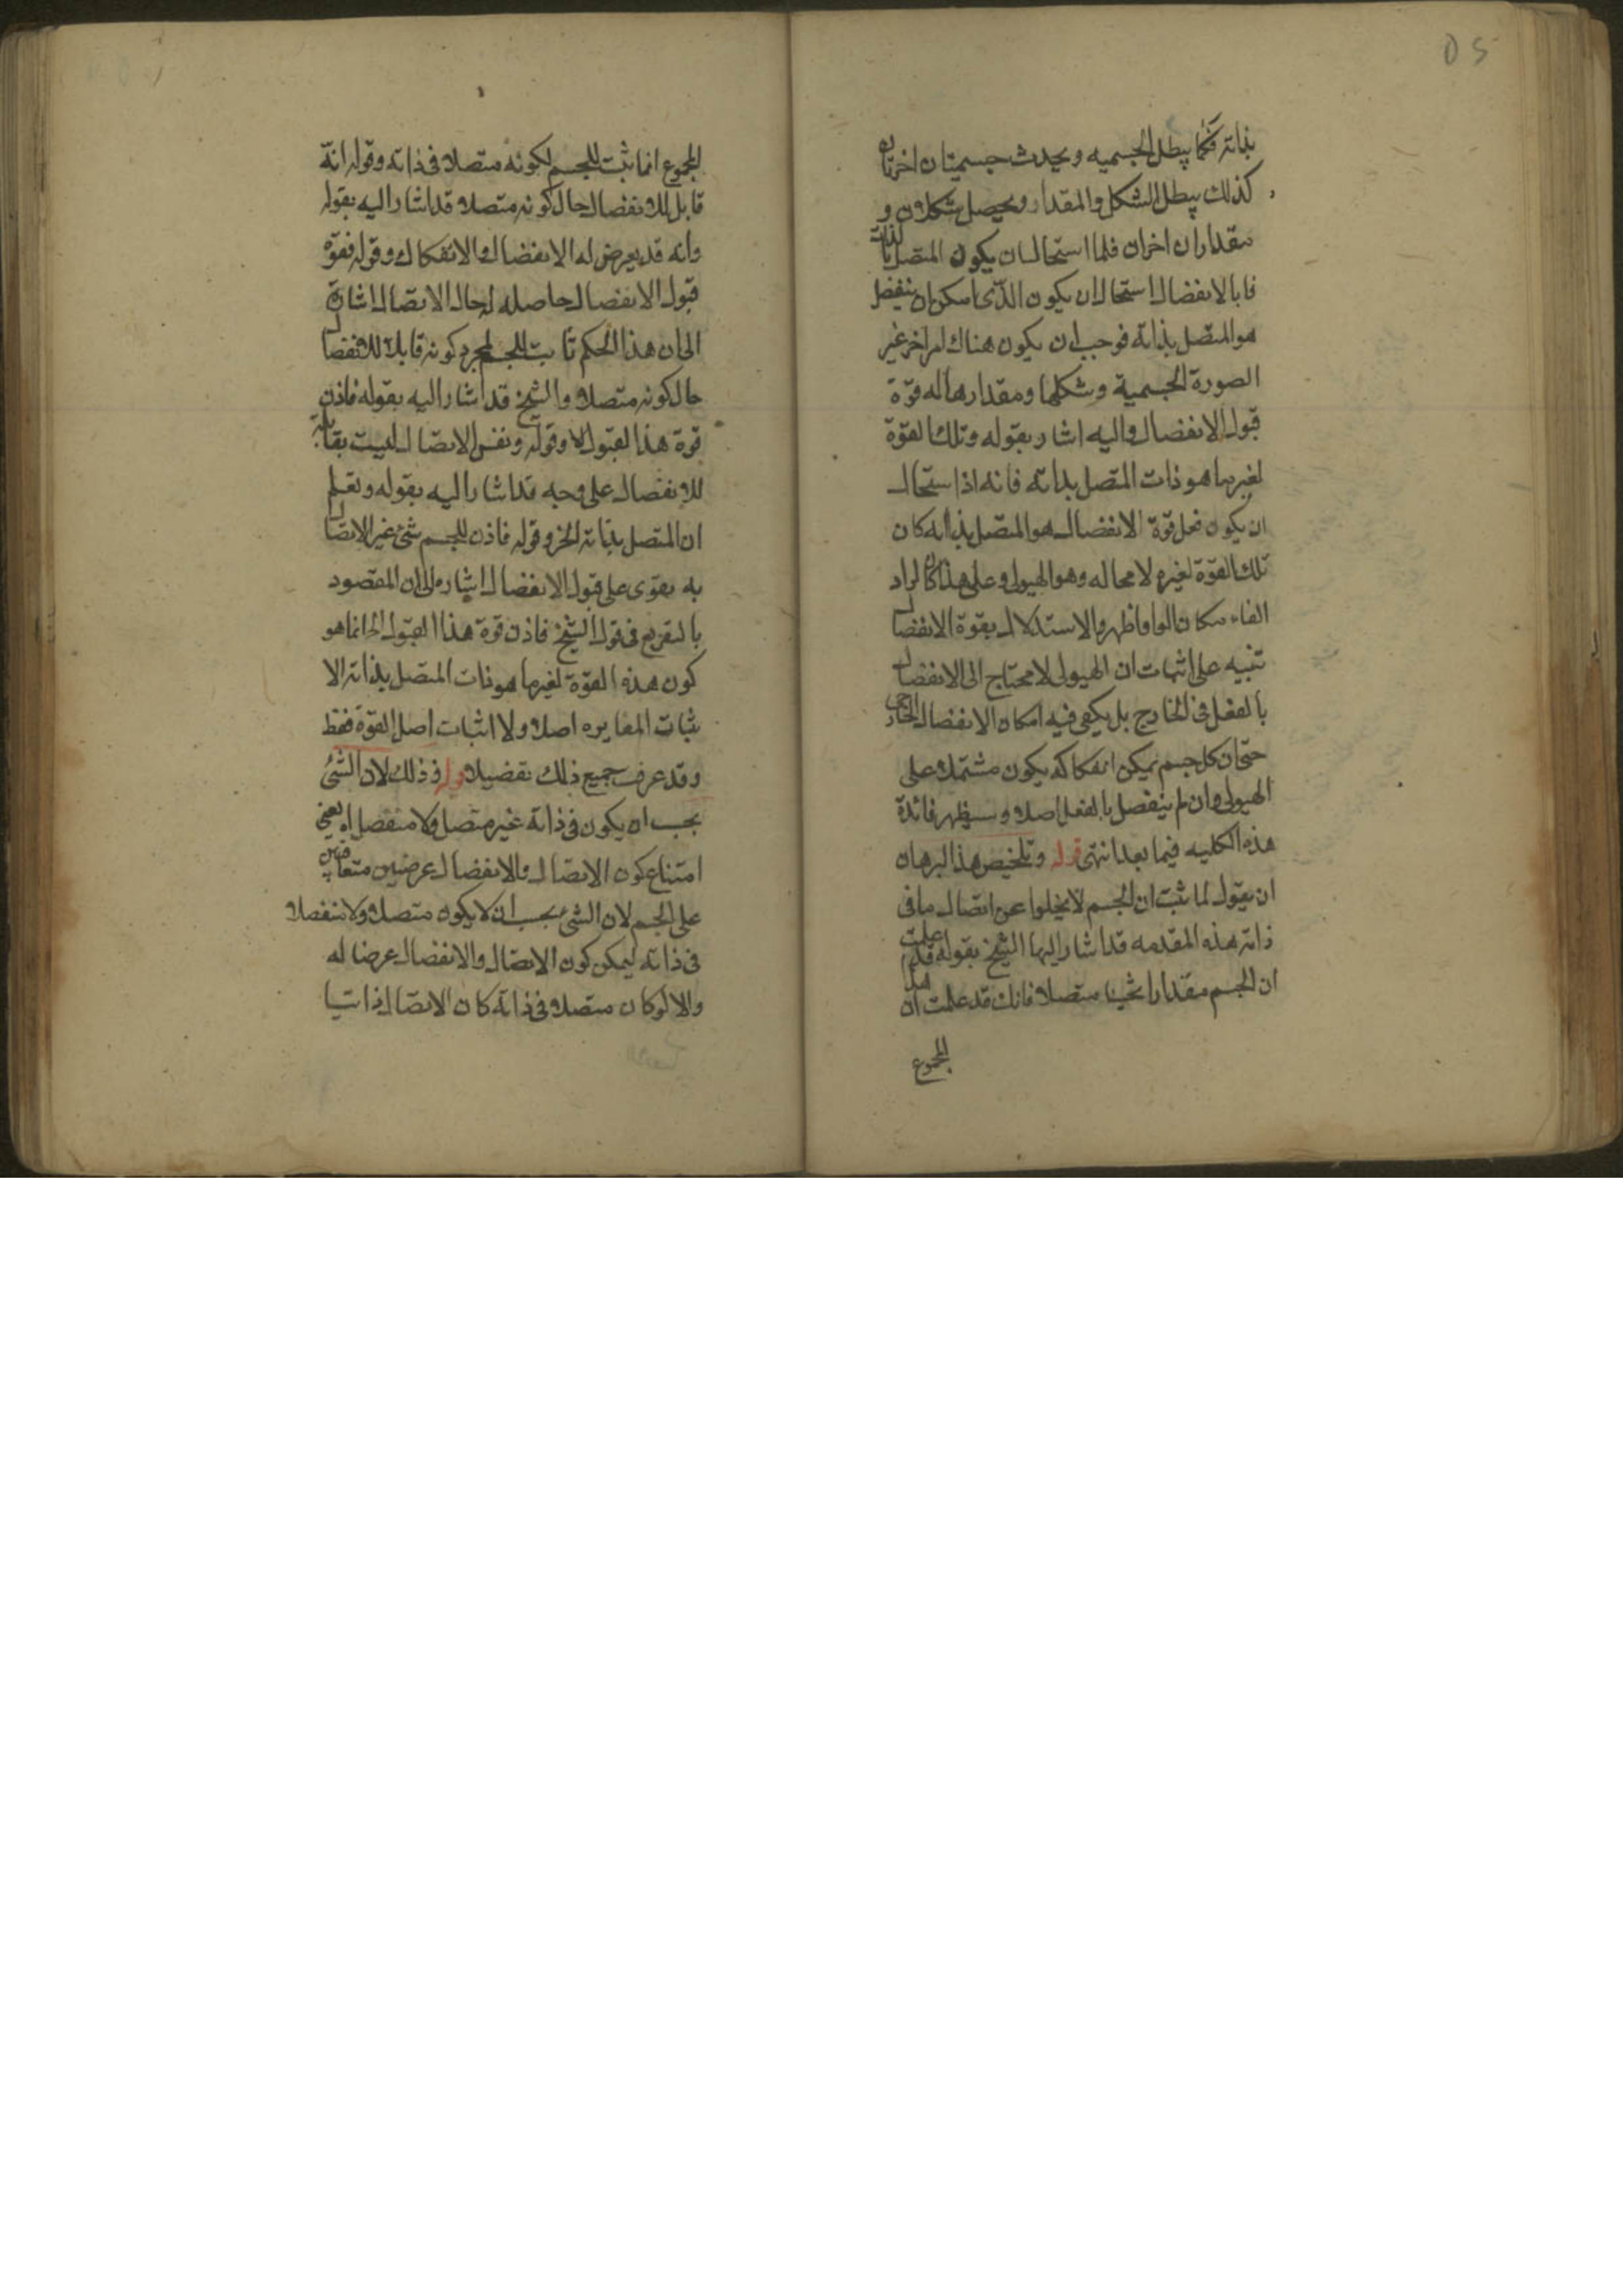 05
بذاته فكما يبطل الجسميه ويحدث جسميتان اخريان
كذلك يبطل الشكل والمقدار ويحصل شكلان و
مقداران اخران فلما استحال ان يكون المتصل بالذات
قابالانفضال استحال ان يكون الذى امكن ان ينفصل
هو المتصل بذاته فوجب ان يكون هناك امر اخر غير
الصورة الجسمية وشكلها ومقدارها له قوة
قبول الانفصال واليه اشار بقوله وتلك القوة
لغير ما هو ذات المتصل بذاته فانه اذا استحال
ان يكون محل قوة الانفصال هو المتصل بذاته كان
تلك القوة لغيره لا محاله وهو الهيولى وعلى هذا كان ايراد
الفاء مكان الواو اظهر والاستدلال بقوة الانفصال
تنبيه على اثبات ان الهيولى لا محتاج الى الانفصال
بالفعل فى الخارج بل يكفى فيه امكان الانفصال الخارجى
حتى ان كل جسم يمكن انفكاكه يكون مشتملا على
الهيولى وان لم ينفصل بالفعل اصلا وسيظهر فائدة
هذه الكليه فيما بعد انتهى قوله وتلخيص هذا البرهان
ان يقول لما ثبت ان الجسم لا يخلوا عن اتصال ما فى
ذاته هذه المقدمه قد اشار اليها الشيخ بقوله قد علمت
ان للجسم مقدارا ثخينا متصلا فانك قد علمت ان هذا
المجموع
المجموع انما ثبت للجسم لكونه متصلا فى ذاته وقوله انه
قابل للانفصال حال كونه متصلا قد اشار اليه بقوله
وانه قد يعرض له الانفصال والانفكاك وقوله فقوة
قبول الانفصال حاصله له حال الاتصال اشارة
الى ان هذا الحكم ثابت للجسم لمجرد كونه قابلا للانفصال
حال كونه متصلا والشيخ قد اشار اليه بقوله فاذن
قوة هذا القبول الا وقوله ونفس الاتصال ليست بقابلة
للانفصال على وجه قد اشار اليه بقوله وتعلم
ان المتصل بذاته الخ وقوله فاذن للجسم شئ غير الاتصال
به يقوى على قبول الانفصال اشاره الى ان المقصود
بالتفريع فى قول الشيخ فاذن قوة هذا القبول الخ انما هو
كون هذه القوة لغير ما هو ذات المتصل بذاته الا
ثبات المغايره اصلا ولا اثبات اصل القوة فقط
وقد عرفت جميع ذلك تفصيلا قوله وذلك لان الشئ
يجب ان يكون فى ذاته غير متصل ولا منفصل اه يعنى
امتناع كون الاتصال والانفصال عرضيين متعاقبين
على الجسم لان الشئ يجب ان لا يكون متصلا ولا منفصلا
فى ذاته ليمكن كون الاتصال والانفصال عرضا له
والا لو كان متصلا فى ذاته كان الاتصال ذاتيا